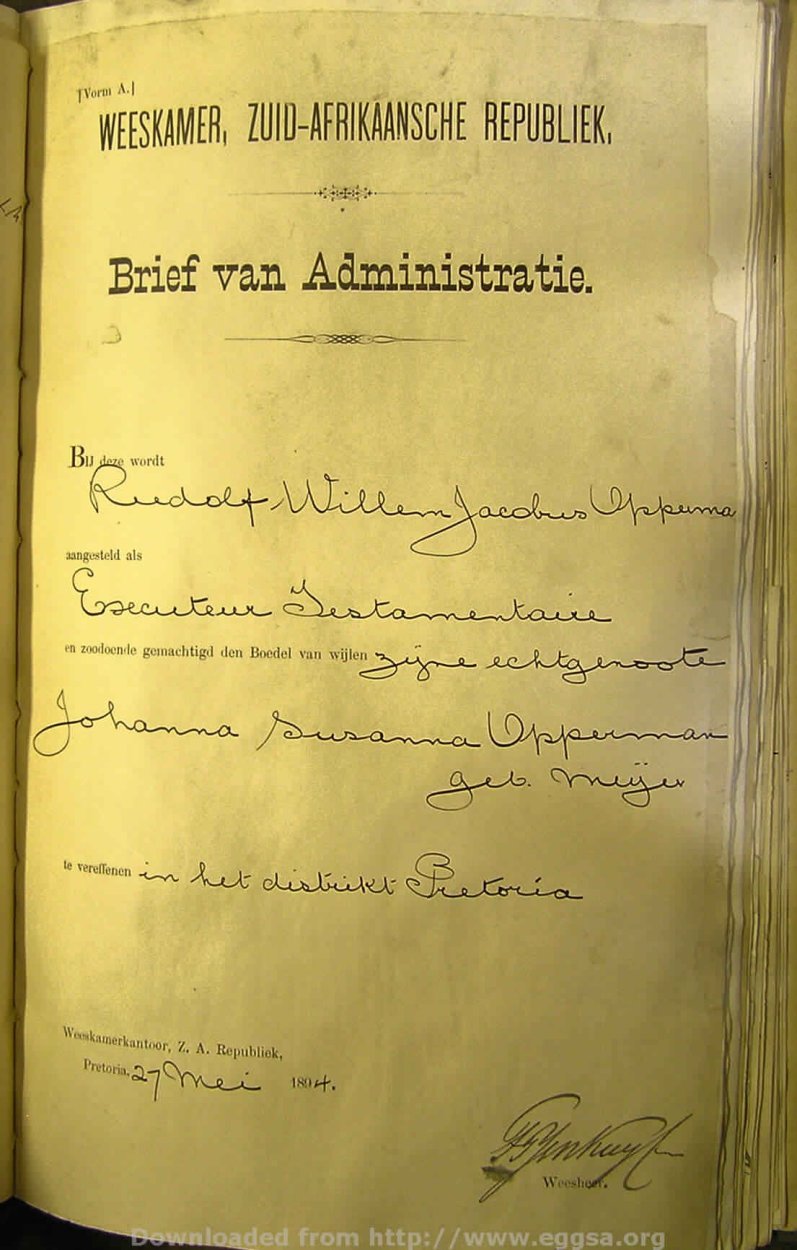 [Vorm A.]
WEESKAMER, ZUID-AFRIKAANSCHE REPUBLIEK,
Brief van Administratie.
Bij deze wordt
Rudolf Willem Jacobus Opperma
aangesteld als
Executeur Testamentaire
en zoodoende gemachtigd den Boedel van wijlen zijne echtgenoote
Johanna Susanna Opperman
geb. Meijer
te vereffenen in het distrikt Pretoria
Weeskamerkantoor, Z. A. Republiek,
Pretoria, 27 Mei 1894.
Weesheer.
Downloaded from http://www.eggsa.org